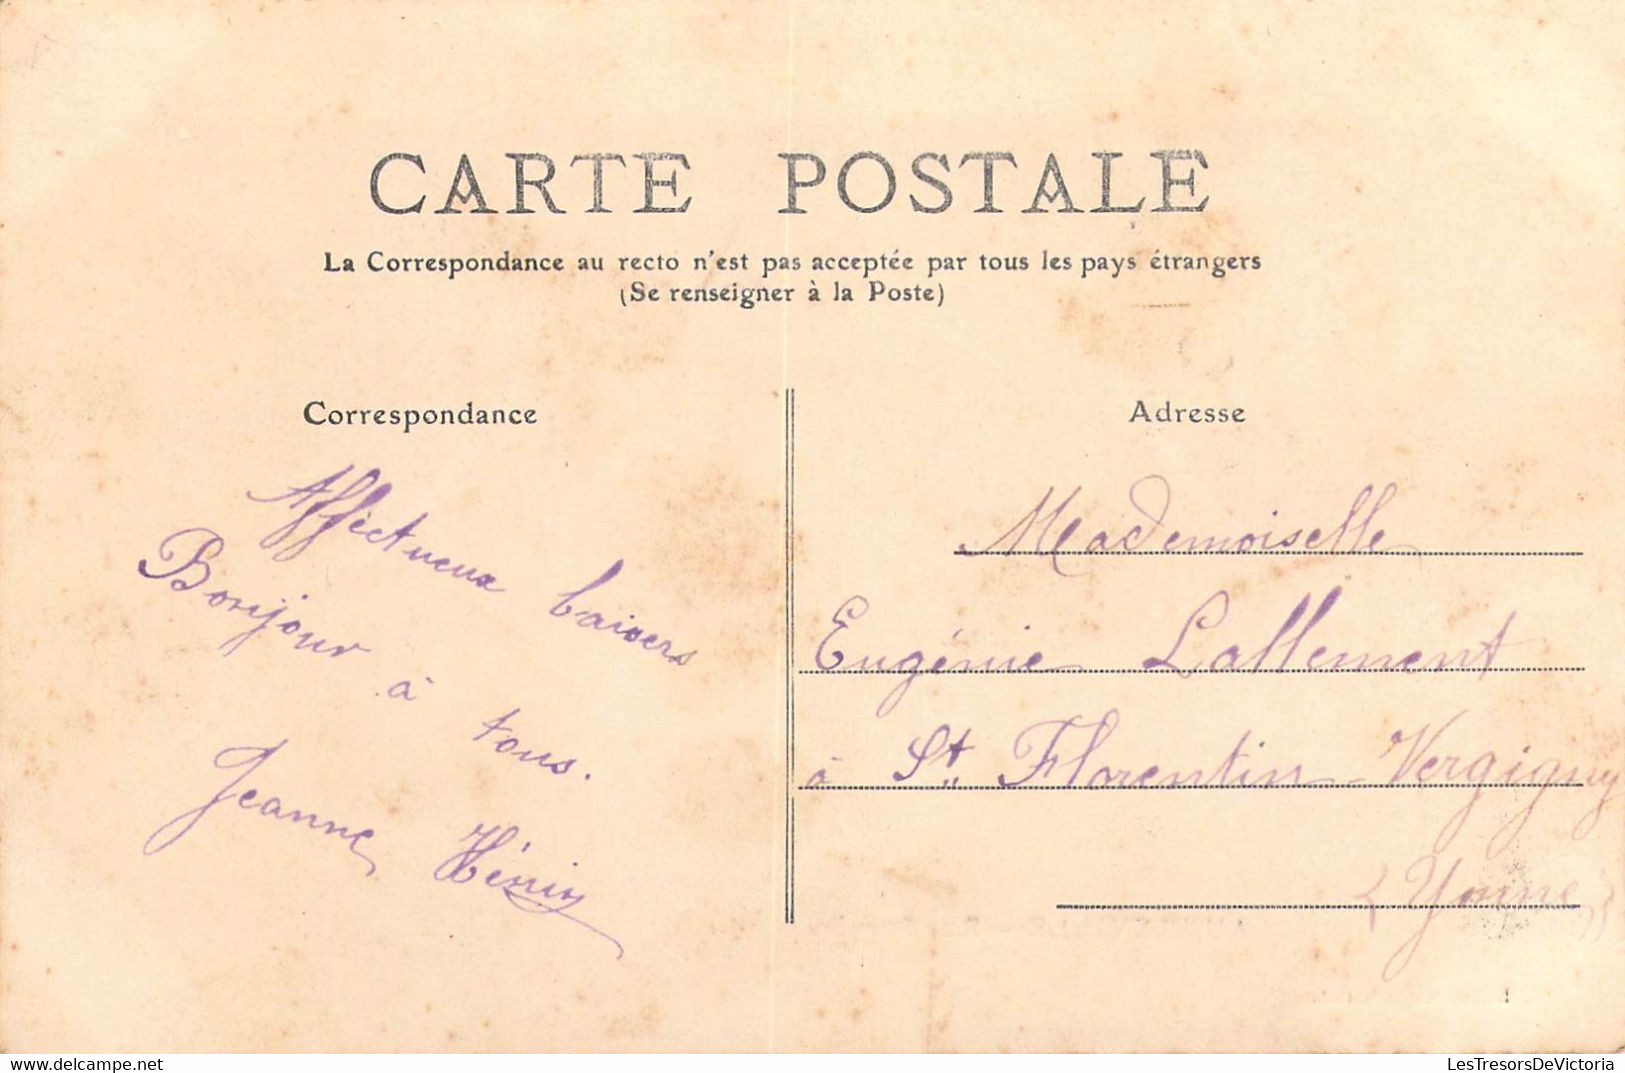 CARTE POSTALE
La Correspondance au recto n'est pas acceptée par tous les pays étrangers
(Se renseigner à la Poste)
Correspondance
Affectueux baisers
Bonjour à tous.
Jeanne Hénin
Adresse
Mademoiselle
Eugénie Lallement
à St Florentin-Vergigny
(Yonne)
LesTresorsDeVictoria